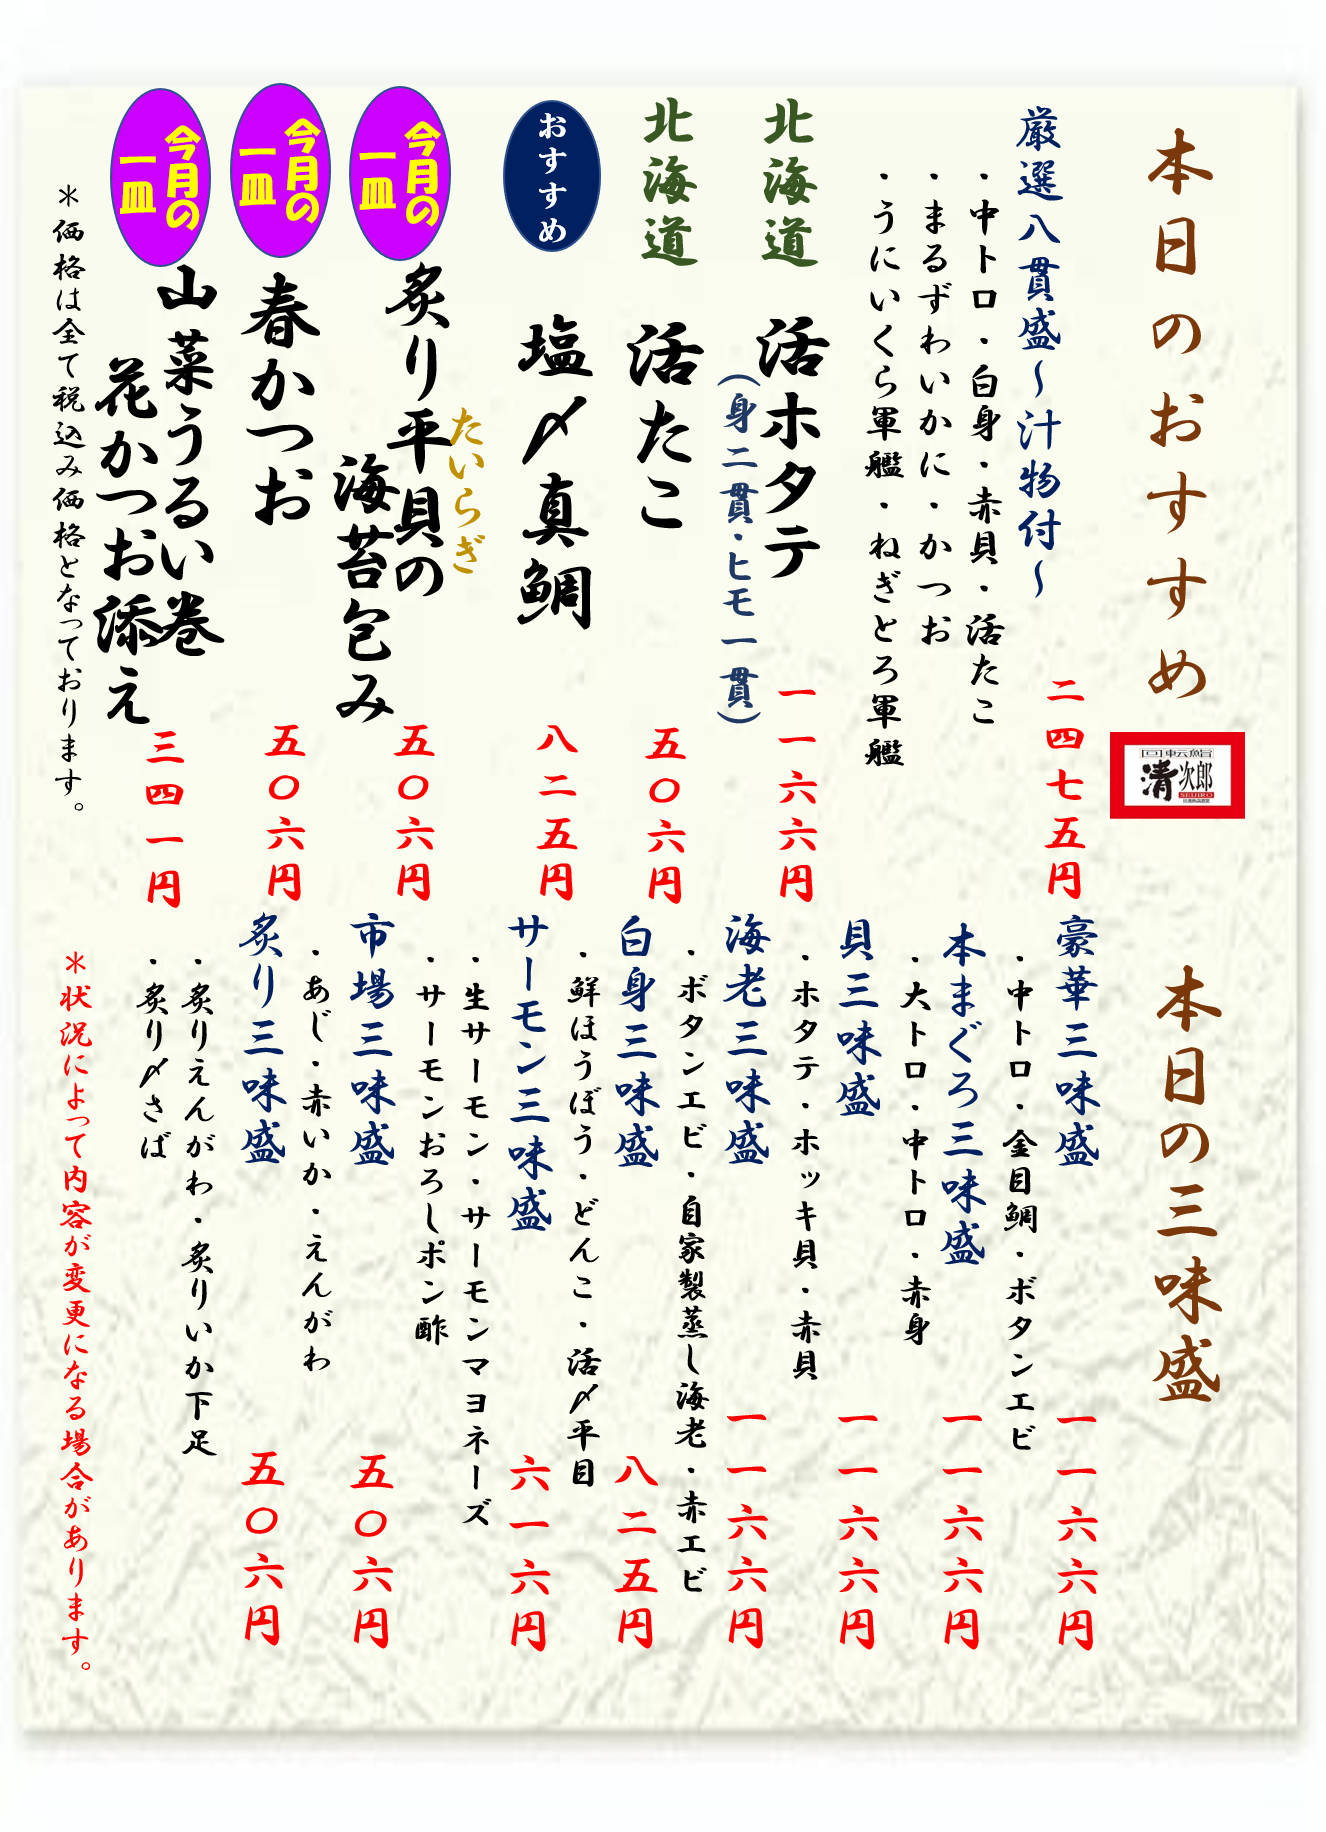 本日のおすすめ
回転鮨
清次郎
SEIJIRO
厳選八貫盛～汁物付～
二四七五円
・中トロ・白身・赤貝・活たこ
・まるずわいかに・かつお
・うにいくら軍艦・ねぎとろ軍艦
北海道
活ホタテ
(身二貫・ヒモ一貫)
一一六六円
北海道
活たこ
五〇六円
おすすめ
塩〆真鯛
八二五円
今月の
一皿
たいらぎ
炙り平貝の
海苔包み
五〇六円
今月の
一皿
春かつお
五〇六円
今月の
一皿
山菜うるい巻
花かつお添え
三四一円
＊価格は全て税込み価格となっております。
本日の三味盛
豪華三味盛
一一六六円
・中トロ・金目鯛・ボタンエビ
本まぐろ三味盛
一一六六円
・大トロ・中トロ・赤身
貝三味盛
一一六六円
・ホタテ・ホッキ貝・赤貝
海老三味盛
一一六六円
・ボタンエビ・自家製蒸し海老・赤エビ
白身三味盛
八二五円
・鮮ほうぼう・どんこ・活〆平目
サーモン三味盛
六一六円
・生サーモン・サーモンマヨネーズ
・サーモンおろしポン酢
市場三味盛
五〇六円
・あじ・赤いか・えんがわ
炙り三味盛
五〇六円
・炙りえんがわ・炙りいか下足
・炙り〆さば
＊状況によって内容が変更になる場合があります。